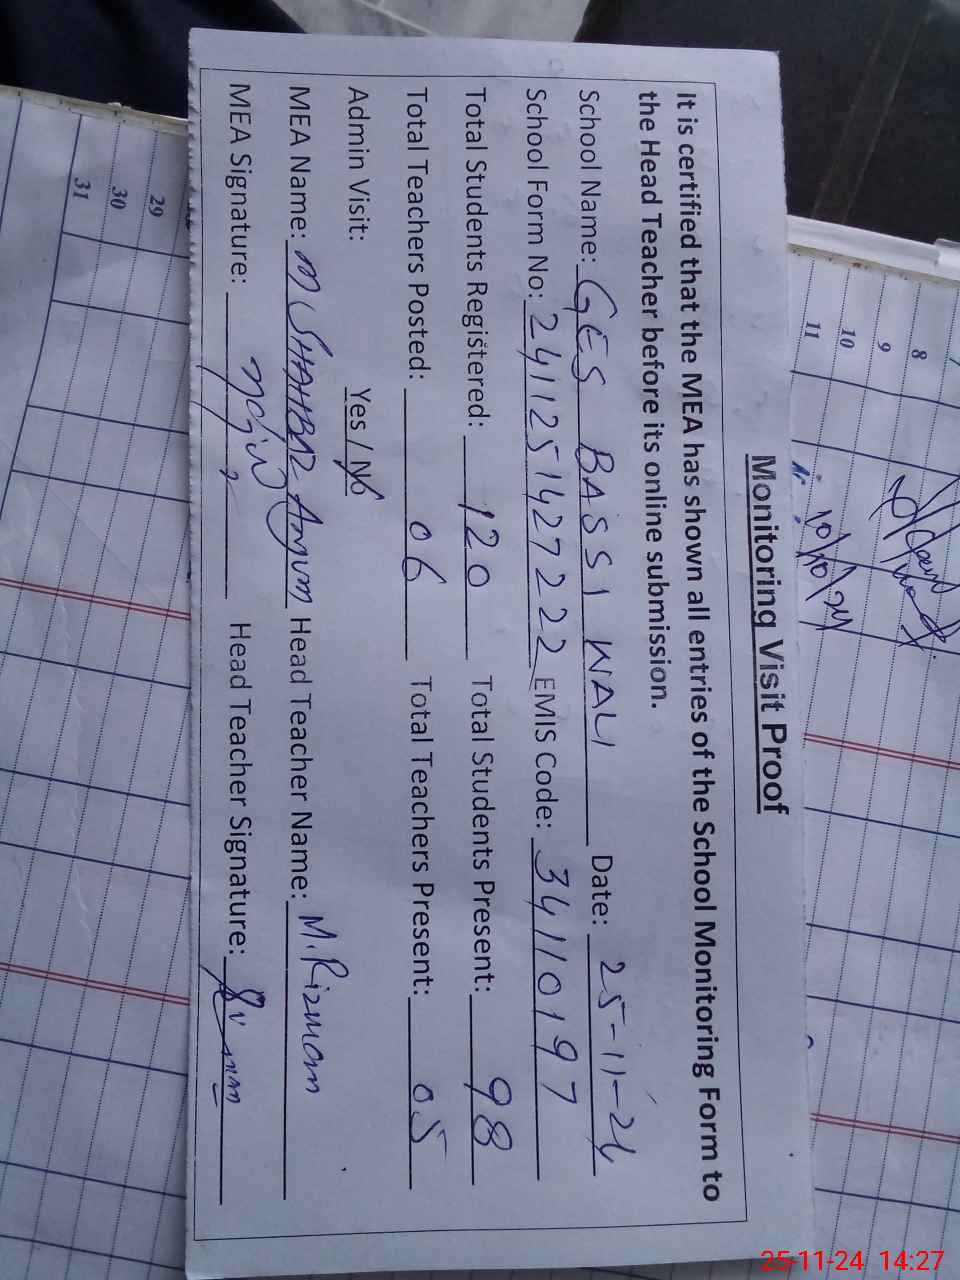 Monitoring Visit Proof
It is certified that the MEA has shown all entries of the School Monitoring Form to
the Head Teacher before its online submission.
School Name: GES BASSI WALI Date: 25-11-24
School Form No: 24112514272222 EMIS Code: 34110197
Total Students Registered: 120 Total Students Present: 98
Total Teachers Posted: 06 Total Teachers Present: 05
Admin Visit: Yes / No
MEA Name: M SHAHBAZ Anjum Head Teacher Name: M. Rizwan
MEA Signature: Head Teacher Signature:
10/10/24
8
9
10
11
29
30
31
25-11-24 14:27